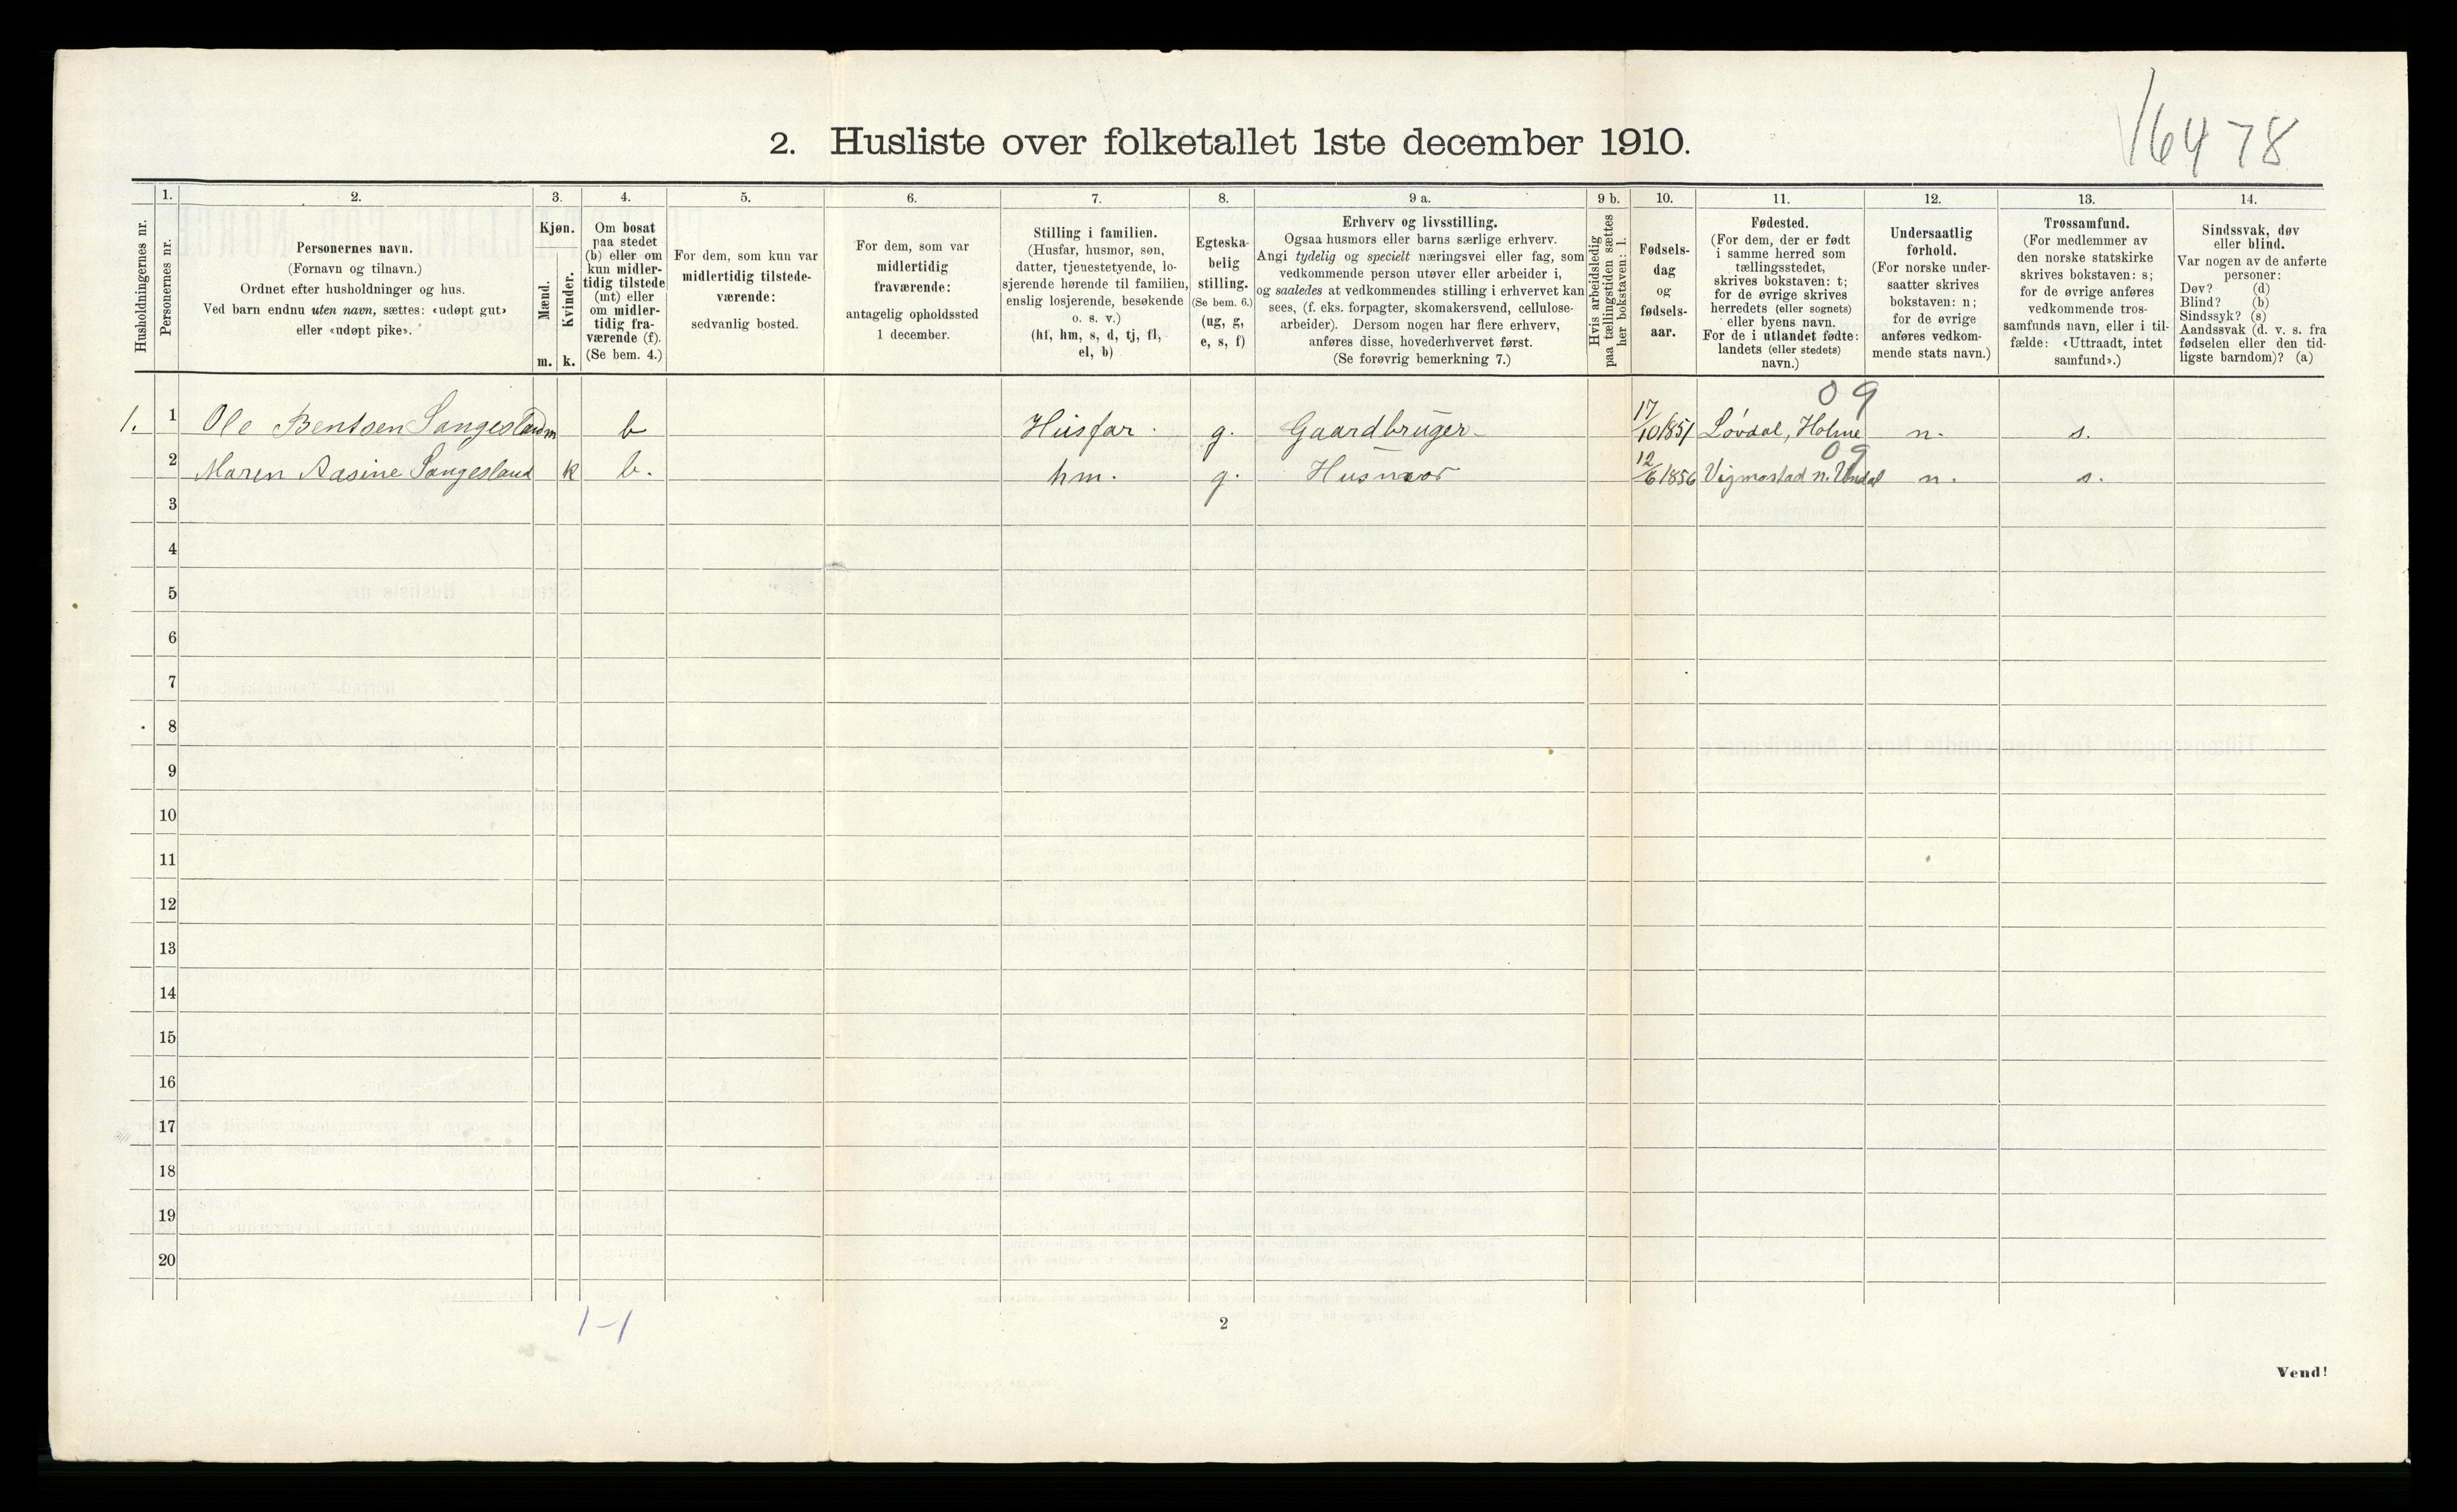 16478
2. Husliste over folketallet 1ste december 1910.
Husholdningernes nr.
1. Personernes nr.
2. Personernes navn.
(Fornavn og tilnavn.)
Ordnet efter husholdninger og hus.
Ved barn endnu uten navn, sættes: «udøpt gut»
eller «udøpt pike».
3. Kjøn.
Mænd. m.
Kvinder. k.
4. Om bosat
paa stedet
(b) eller om
kun midler-
tidig tilstede
(mt) eller
om midler-
tidig fra-
værende (f).
(Se bem. 4.)
5. For dem, som kun var
midlertidig tilstede-
værende:
sedvanlig bosted.
6. For dem, som var
midlertidig
fraværende:
antagelig opholdssted
1 december.
7. Stilling i familien.
(Husfar, husmor, søn,
datter, tjenestetyende, lo-
sjerende hørende til familien,
enslig losjerende, besøkende
o. s. v.)
(hf, hm, s, d, tj, fl,
el, b)
8. Egteska-
belig
stilling.
(Se bem. 6.)
(ug, g,
e, s, f)
9 a. Erhverv og livsstilling.
Ogsaa husmors eller barns særlige erhverv.
Angi tydelig og specielt næringsvei eller fag, som
vedkommende person utøver eller arbeider i,
og saaledes at vedkommendes stilling i erhvervet kan
sees, (f. eks. forpagter, skomakersvend, cellulose-
arbeider). Dersom nogen har flere erhverv,
anføres disse, hovederhvervet først.
(Se forøvrig bemerkning 7.)
9 b. Hvis arbeidsledig
paa tællingstiden sættes
her bokstaven: l.
10. Fødsels-
dag
og
fødsels-
aar.
11. Fødested.
(For dem, der er født
i samme herred som
tællingsstedet,
skrives bokstaven: t;
for de øvrige skrives
herredets (eller sognets)
eller byens navn.
For de i utlandet fødte:
landets (eller stedets)
navn.)
12. Undersaatlig
forhold.
(For norske under-
saatter skrives
bokstaven: n;
for de øvrige
anføres vedkom-
mende stats navn.)
13. Trossamfund.
(For medlemmer av
den norske statskirke
skrives bokstaven: s;
for de øvrige anføres
vedkommende tros-
samfunds navn, eller i til-
fælde: «Uttraadt, intet
samfund».)
14. Sindssvak, døv
eller blind.
Var nogen av de anførte
personer:
Døv? (d)
Blind? (b)
Sindssyk? (s)
Aandssvak (d. v. s. fra
fødselen eller den tid-
ligste barndom)? (a)
09
1. 1 Ole Bentsen Sangesland m b Husfar. g. Gaardbruger 17/10 1851 Løvdal, Holme n. s.
09
2 Maren Aasine Sangesland k b. hm. g. Husmor 12/6 1856 Vigmostad n. Undal n. s.
3
4
5
6
7
8
9
10
11
12
13
14
15
16
17
18
19
20
1-1
2
Vend!